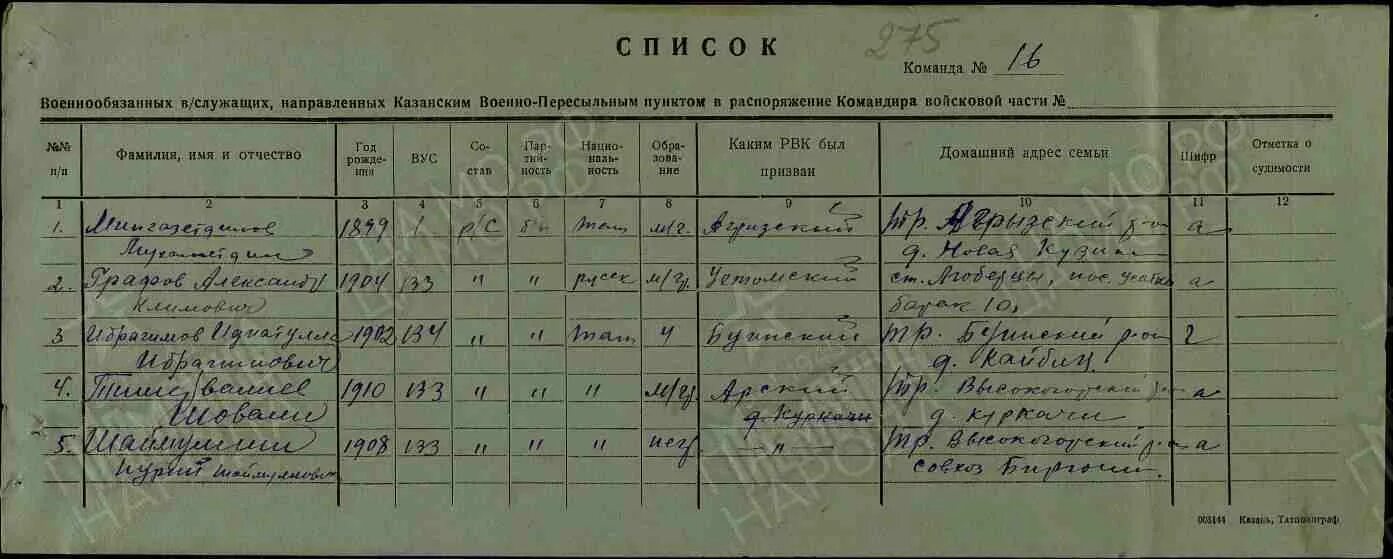 275
СПИСОК
Команда № 16
Военнообязанных в/служащих, направленных Казанским Военно-Пересыльным пунктом в распоряжение Командира войсковой части №
№№ п/п Фамилия, имя и отчество Год рождения ВУС Состав Партийность Национальность Образование Каким РВК был призван Домашний адрес семьи Шифр Отметка о судимости
1 2 3 4 5 6 7 8 9 10 11 12
1. 1899 1 р/с б/п тат м/г. Агрызский тр. Агрызский р-он а
д. Новая
2. Графов Александр 1904 133 " " русск м/гр. ст. Люберцы, пос. а
Климович барак 10,
3 Ибрагимов 1902 134 " " тат 4 Буинский тр. Буинский р-он 2
Ибрагимович д. Кайбиц
4. 1910 133 " " " м/гр. Арский тр. Высокогорский р-он а
Шовали д. Куркачи д. Куркачи
5. 1908 133 " " " негр — " — тр. Высокогорский р-он а
совхоз
003144 Казань, Татполиграф